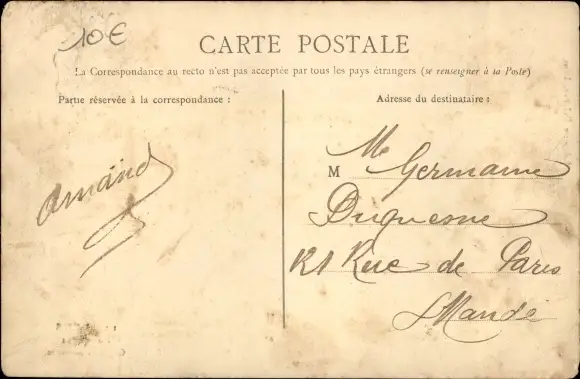 10€
CARTE POSTALE
La Correspondance au recto n'est pas acceptée par tous les pays étrangers (se renseigner à la Poste)
Partie réservée à la correspondance :
Armand
Adresse du destinataire :
M Me Germaine
Duquesne
121 Rue de Paris
St Mandé